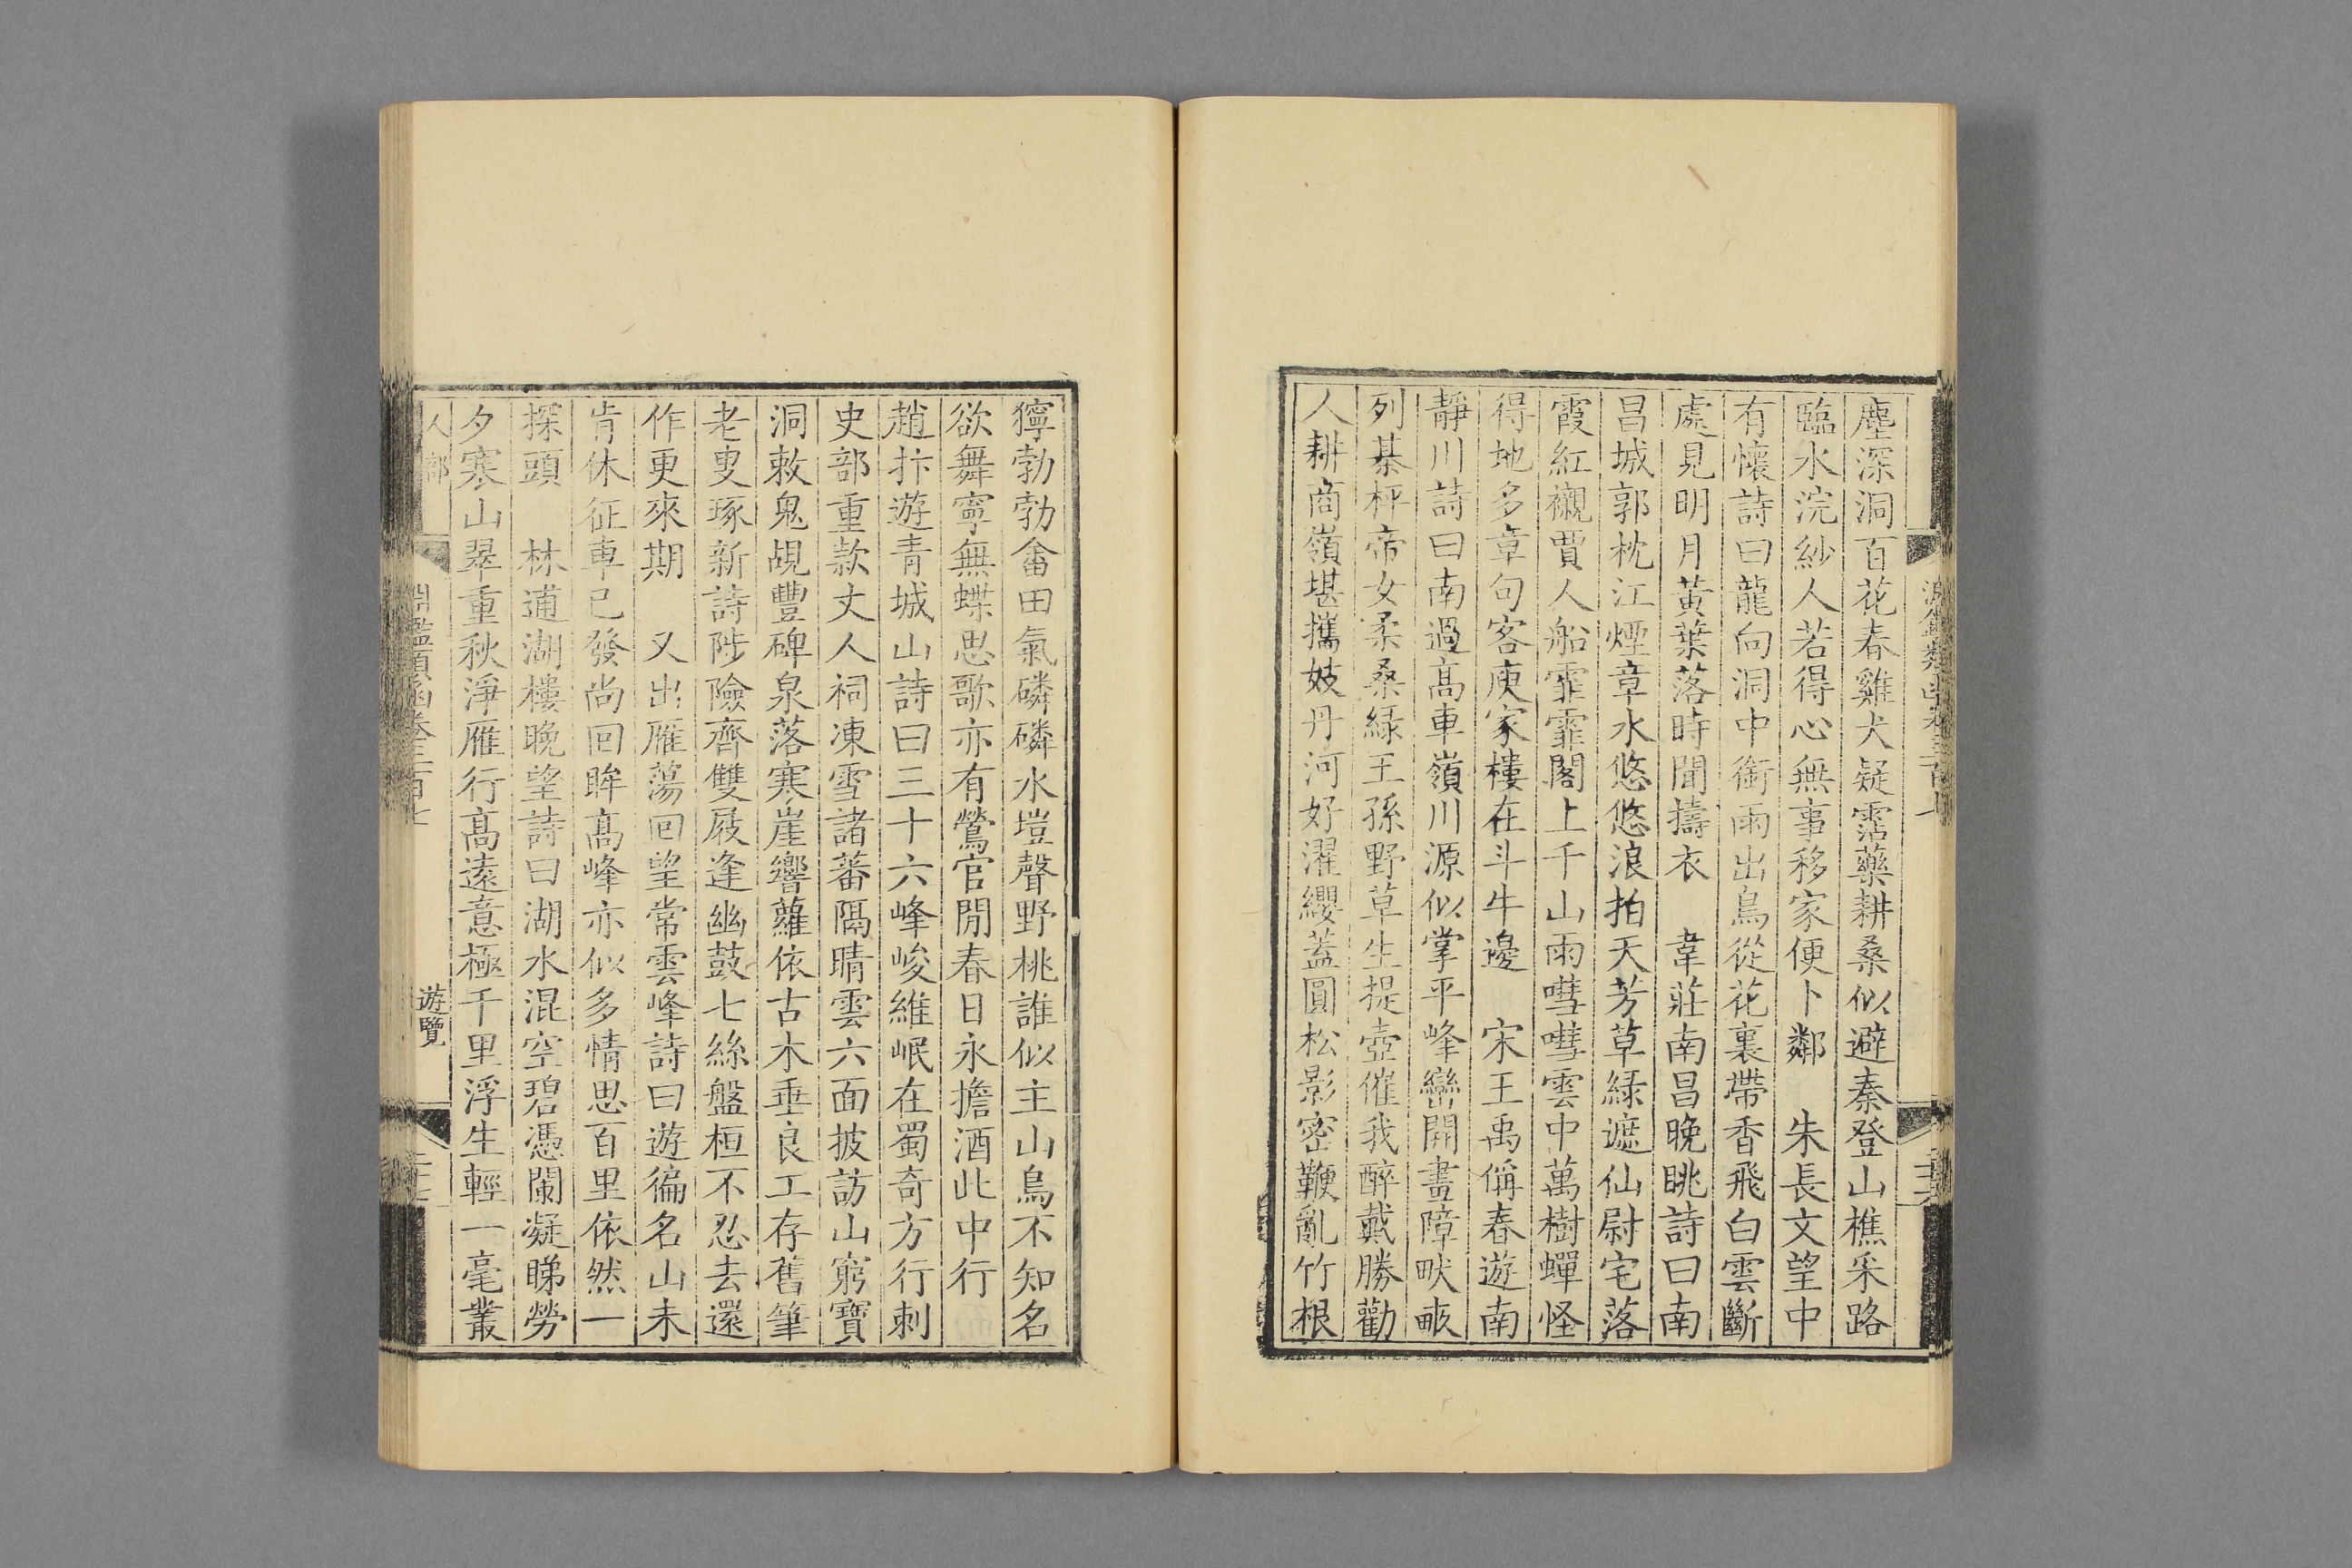 塵深洞百花春雞犬疑霑藥耕桑似避秦登山樵采路
臨水浣紗人若得心無事移家便卜鄰　朱長文望中
有懷詩曰龍向洞中銜雨出鳥從花裏帶香飛白雲斷
處見明月黃葉落時聞擣衣　韋莊南昌晚眺詩曰南
昌城郭枕江煙章水悠悠浪拍天芳草綠遮仙尉宅落
霞紅襯賈人船霏霏閣上千山雨嘒嘒雲中萬樹蟬怪
得地多章句客庾家樓在斗牛邊　宋王禹偁春遊南
靜川詩曰南過高車嶺川源似掌平峰巒開畫障畎畝
列棊枰帝女柔桑綠王孫野草生提壺催我醉戴勝勸
人耕商嶺堪攜妓丹河好濯纓蓋圓松影密鞭亂竹根
獰勃勃畬田氣磷磷水塏聲野桃誰似主山鳥不知名
欲舞寧無蝶思歌亦有鶯官閒春日永擔酒此中行
趙抃遊青城山詩曰三十六峰峻維岷在蜀奇方行刺
史部重款丈人祠凍雪諸蕃隔晴雲六面披訪山窮寶
洞敕鬼覘豐碑泉落寒崖響蘿依古木垂良工存舊筆
老叟琢新詩陟險齊雙屐逢幽鼓七絲盤桓不忍去還
作更來期　又出雁蕩回望常雲峰詩曰遊徧名山未
肯休征車已發尚回眸高峰亦似多情思百里依然一
探頭　林逋湖樓晚望詩曰湖水混空碧憑闌凝睇勞
夕寒山翠重秋淨雁行高遠意極千里浮生輕一毫叢
人部　淵鑑類函卷三百七　遊覽